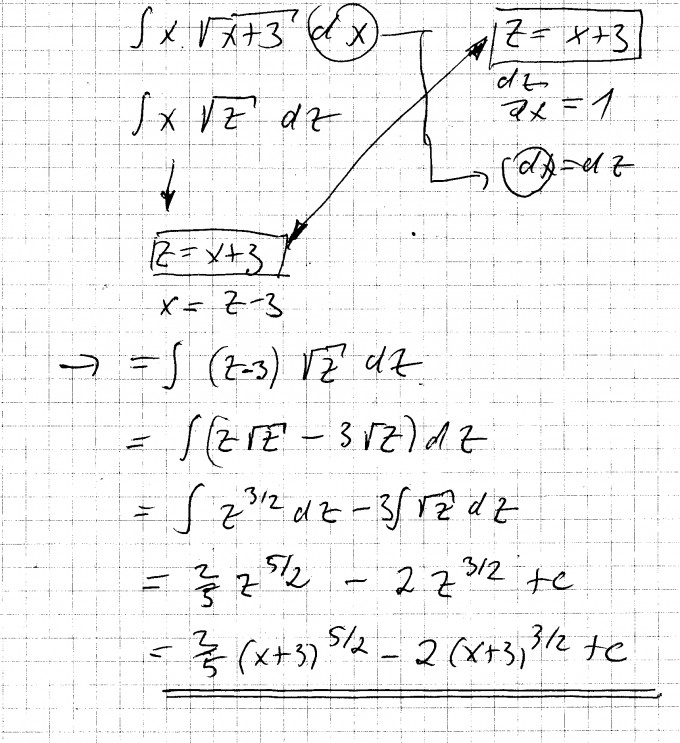 ∫ x √(x+3) dx
z = x+3
dz/dx = 1
∫ x √z dz
dx = dz
z = x+3
x = z-3
→ = ∫ (z-3) √z dz
= ∫ (z √z - 3 √z) dz
= ∫ z^3/2 dz - 3∫ √z dz
= 2/5 z^5/2 - 2 z^3/2 + c
= 2/5 (x+3)^5/2 - 2 (x+3)^3/2 + c